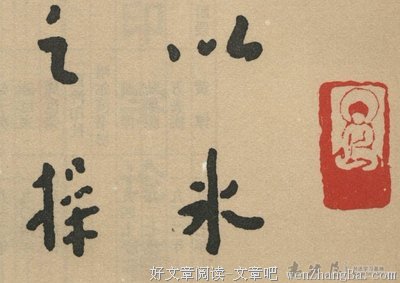 以氷
之操
好文章阅读-文章吧
wenZhangBa.com